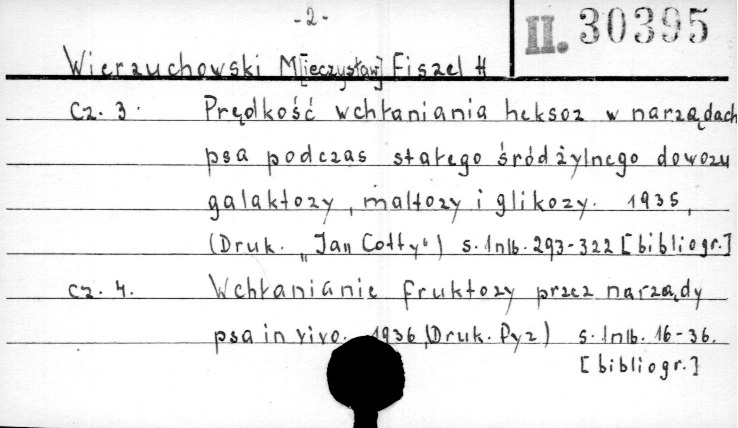 -2-
II. 30395
Wierzuchowski M[ieczysław] Fiszel H
cz. 3. Prędkość wchłaniania heksoz w narządach
psa podczas stałego śródżylnego dowozu
galaktozy, maltozy i glikozy. 1935,
(Druk. „Jan Cotty") s. 1nlb. 293-322 [bibliogr.]
cz. 4. Wchłanianie fruktozy przez narządy
psa in vivo. 1936, (Druk. Pyz) s. 1nlb. 16-36.
[bibliogr.]